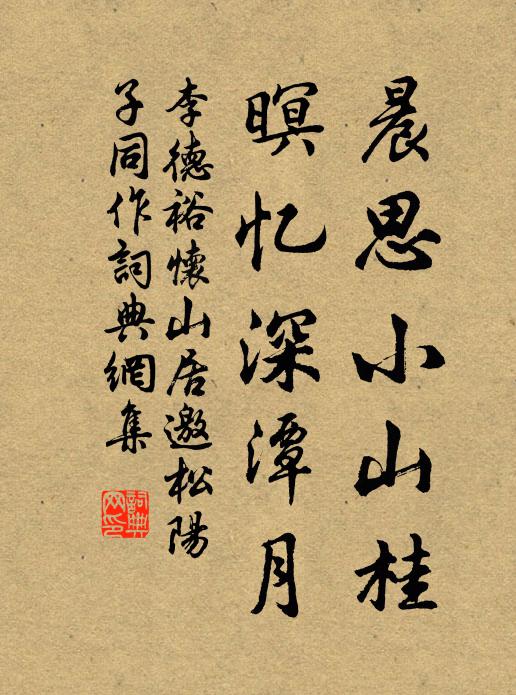 晨思小山桂
暝忆深潭月
李德裕懷山居邀松陽
子同作詞典網集
詞典網印